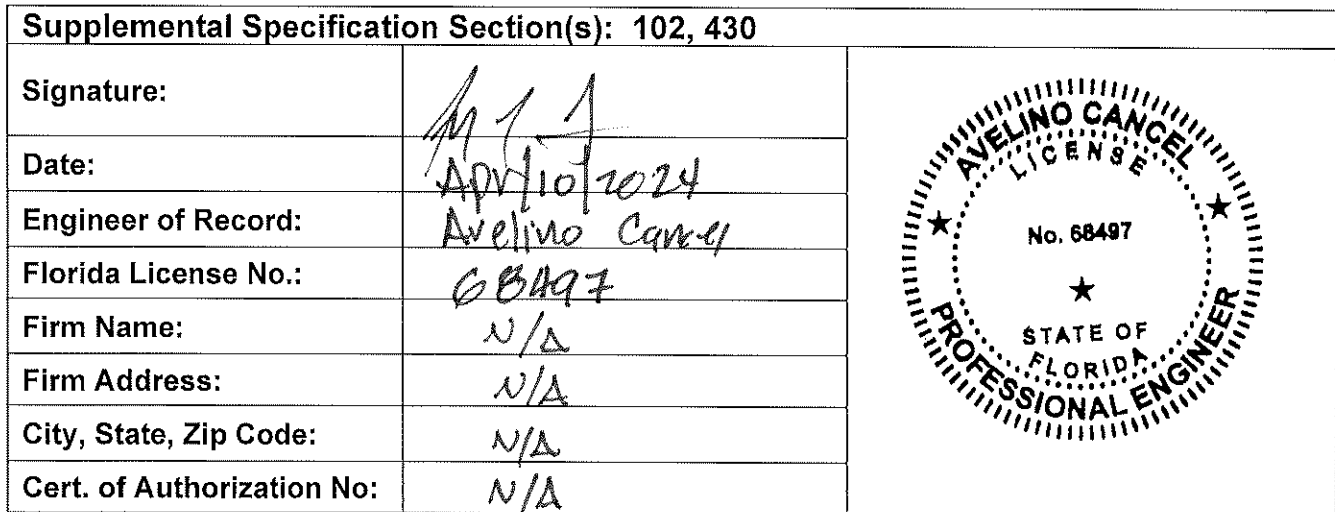 Supplemental Specification Section(s): 102, 430
Signature:
Date: Apr/10/2024
Engineer of Record: Avelino Cancel
Florida License No.: 68497
Firm Name: N/A
Firm Address: N/A
City, State, Zip Code: N/A
Cert. of Authorization No: N/A
AVELINO CANCEL
LICENSE
No. 68497
STATE OF
FLORIDA
PROFESSIONAL ENGINEER